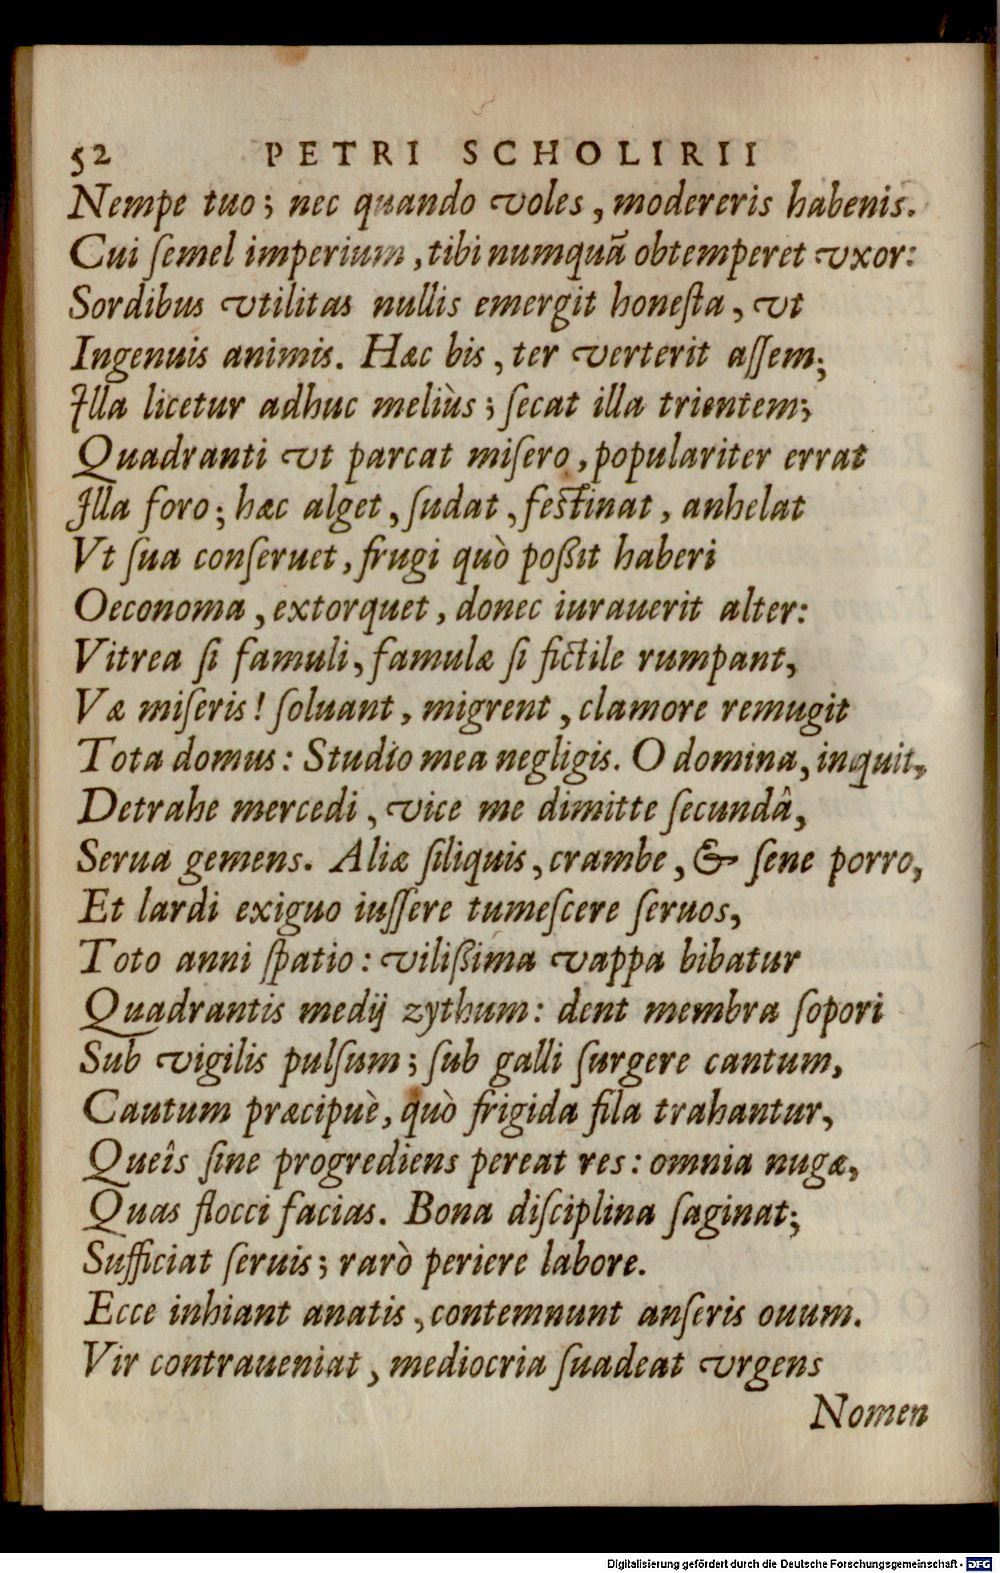 52 PETRI SCHOLIRII
Nempe tuo; nec quando voles, modereris habenis.
Cui ſemel imperium, tibi numquā obtemperet vxor:
Sordibus vtilitas nullis emergit honeſta, vt
Ingenuis animis. Hæc bis, ter verterit aſſem;
Illa licetur adhuc meliùs; ſecat illa trientem;
Quadranti vt parcat miſero, populariter errat
Illa foro; hæc alget, ſudat, feſtinat, anhelat
Vt ſua conſeruet, frugi quò poßit haberi
Oeconoma, extorquet, donec iurauerit alter:
Vitrea ſi famuli, famulæ ſi fictile rumpant,
Væ miſeris! ſoluant, migrent, clamore remugit
Tota domus: Studio mea negligis. O domina, inquit,
Detrahe mercedi, vice me dimitte ſecundâ,
Serua gemens. Aliæ ſiliquis, crambe, & ſene porro,
Et lardi exiguo iuſſere tumeſcere ſeruos,
Toto anni ſpatio: vilißima vappa bibatur
Quadrantis medij zythum: dent membra ſopori
Sub vigilis pulſum; ſub galli ſurgere cantum,
Cautum præcipuè, quò frigida fila trahantur,
Queîs ſine progrediens pereat res: omnia nugæ,
Quas flocci facias. Bona diſciplina ſaginat;
Sufficiat ſeruis; rarò periere labore.
Ecce inhiant anatis, contemnunt anſeris ouum.
Vir contraueniat, mediocria ſuadeat vrgens
Nomen
Digitalisierung gefördert durch die Deutsche Forschungsgemeinschaft - DFG